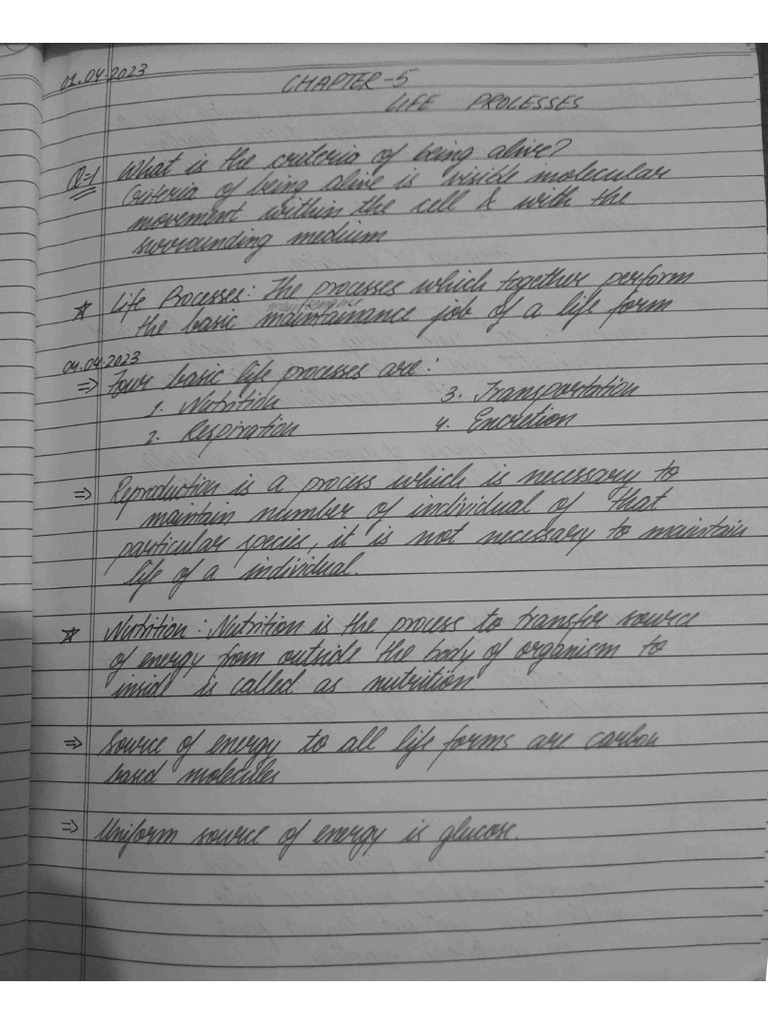 01.04.2023
CHAPTER-5
LIFE PROCESSES
Q=1 What is the criteria of being alive?
Criteria of being alive is visible molecular
movement within the cell & with the
surrounding medium
☆ Life Processes: The processes which together perform
maintenance
the basic maintainance job of a life form
04.04.2023
⇒ Four basic life processes are:
1. Nutrition 3. Transportation
2. Respiration 4. Excretion
⇒ Reproduction is a process which is necessary to
maintain number of individual of that
particular species, it is not necessary to maintain
life of a individual.
☆ Nutrition: Nutrition is the process to transfer source
of energy from outside the body of organism to
inside is called as nutrition
⇒ Source of energy to all life forms are carbon
based molecules
⇒ Uniform source of energy is glucose.